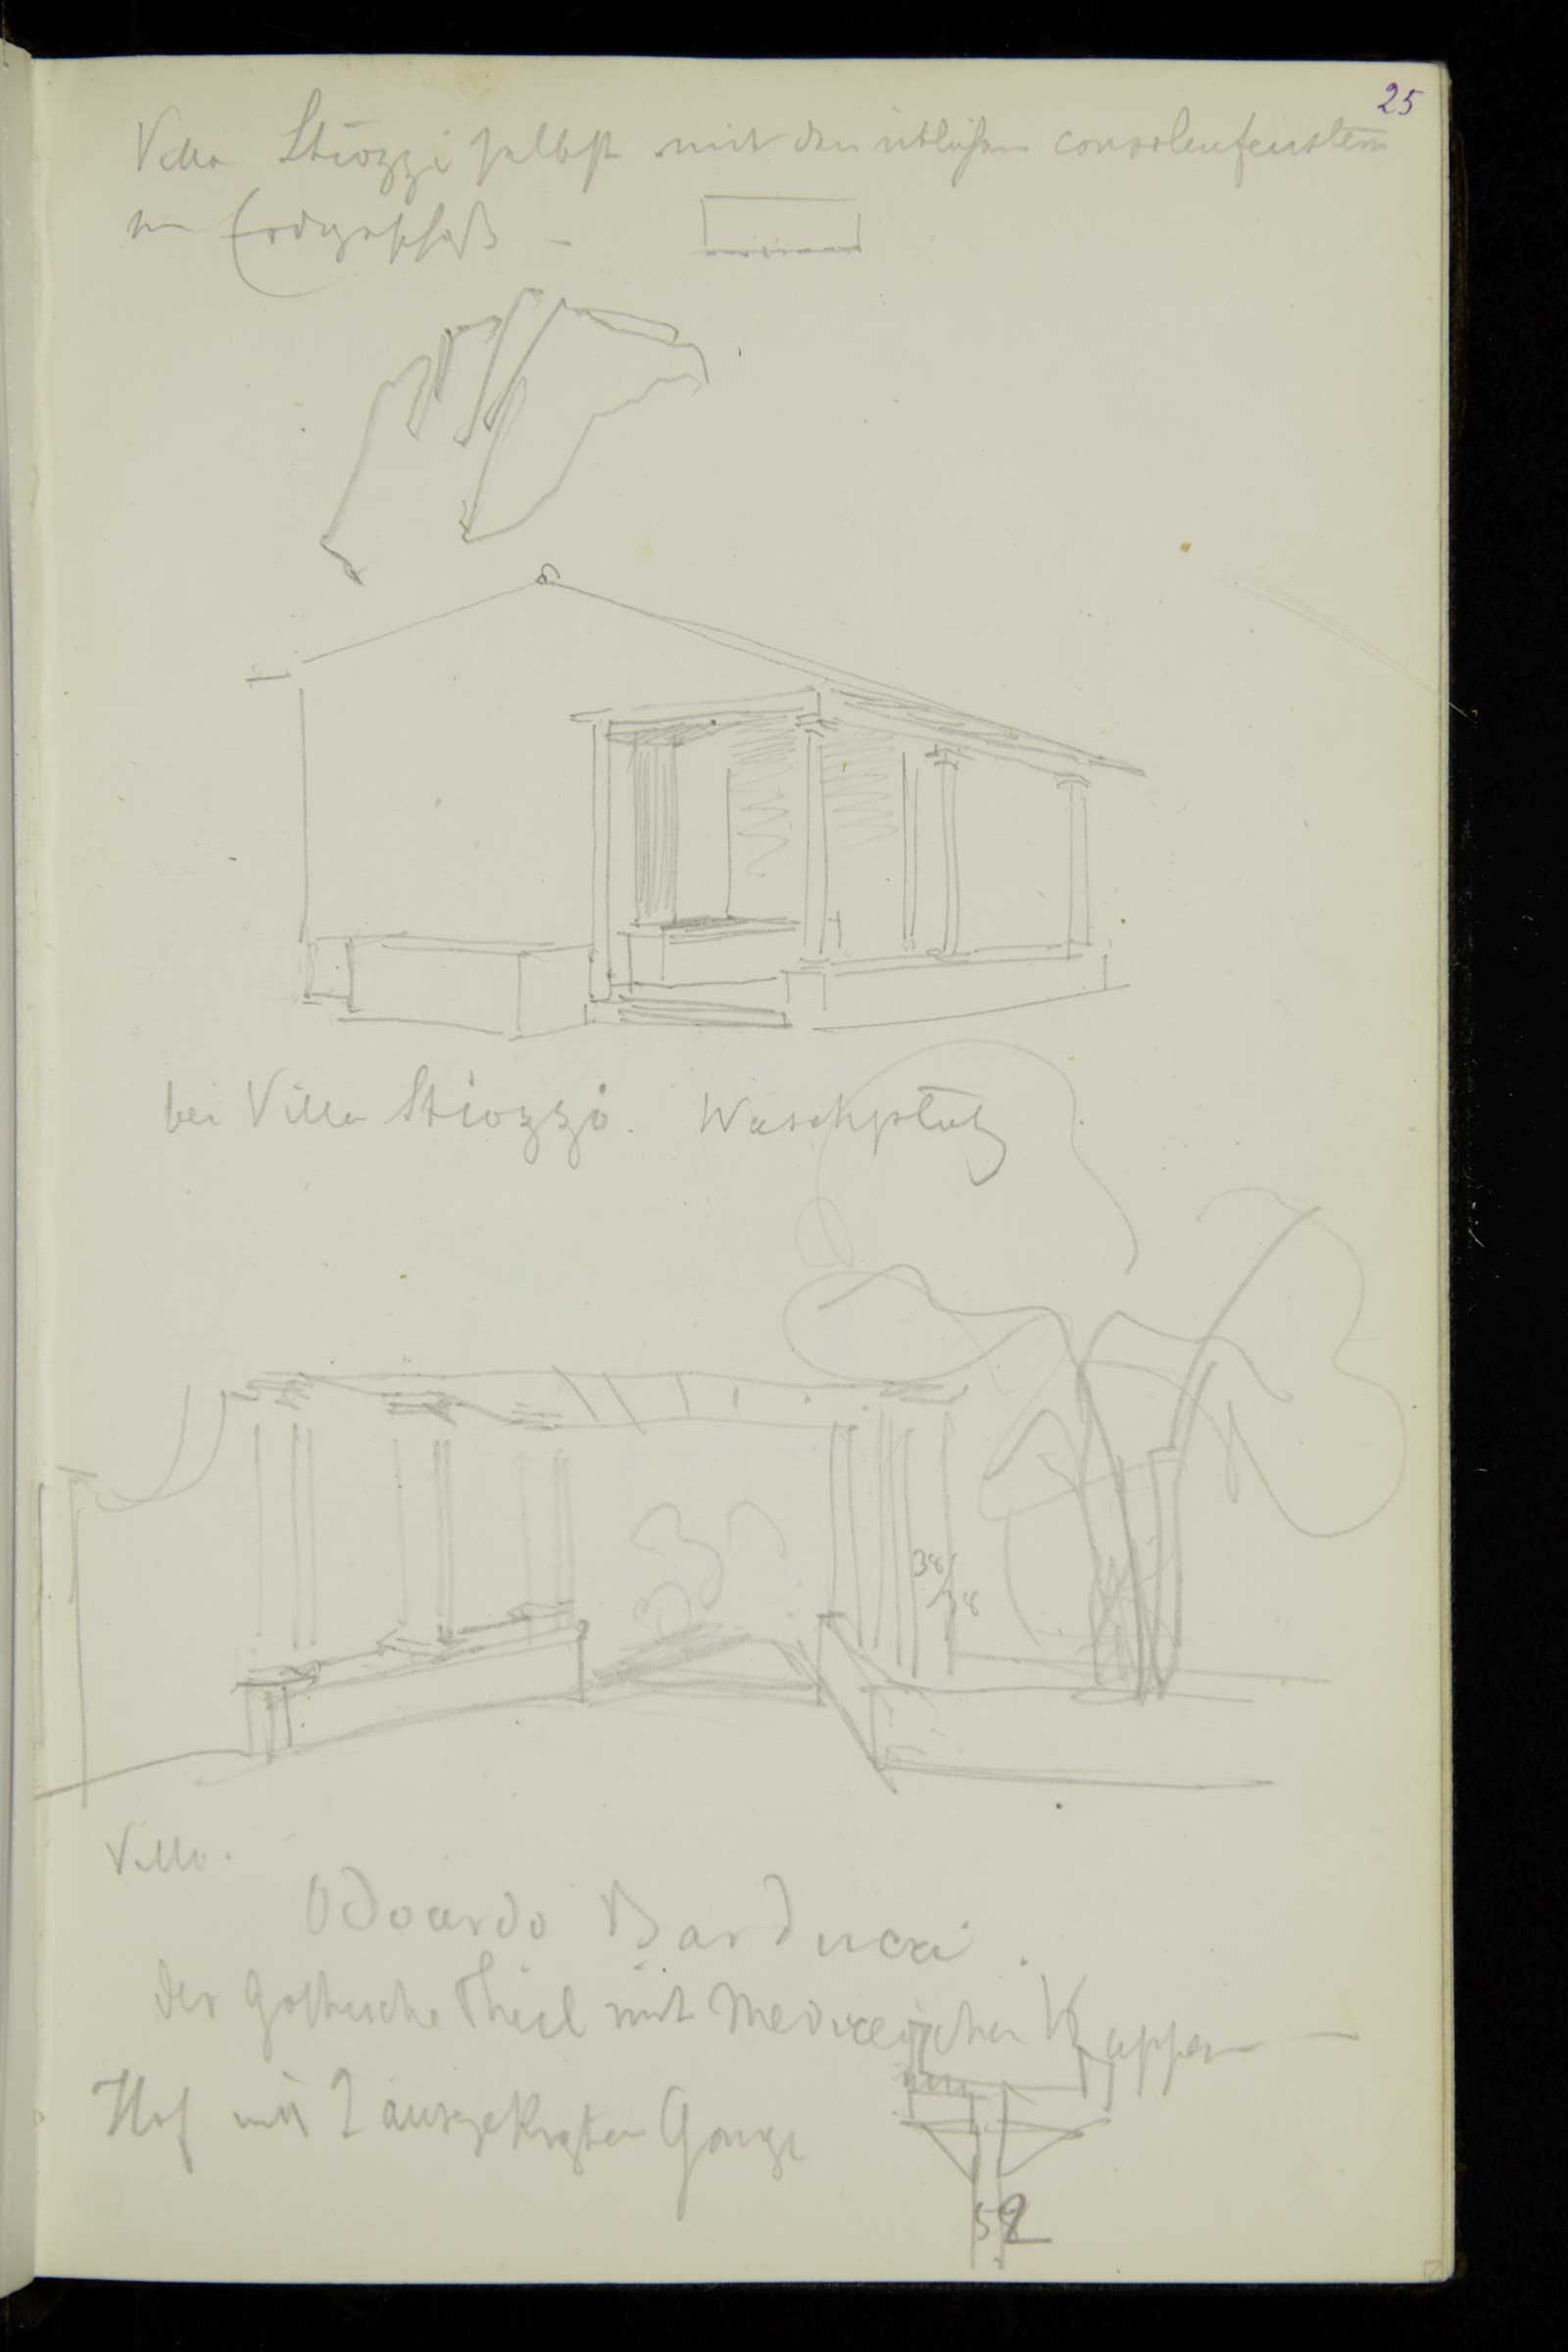 25
Villa Strozzi selbst mit den üblichen consolenfenstern
im Erdgeschoß –
bei Villa Strozzi. Waschplatz
38
/78
Villa.
Odoardo Barducci.
der gothische Theil mit Mediceischen Wappen –
Hof mit 2 ausgekragten Gange
52